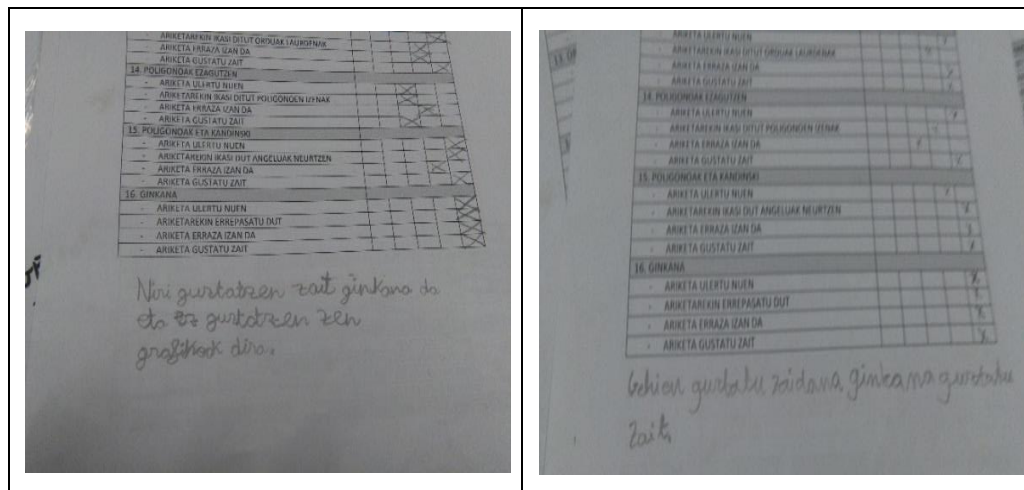 - ARIKETAREKIN IKASI DITUT ORDUAK LAURDENAK
- ARIKETA ERRAZA IZAN DA
- ARIKETA GUSTATU ZAIT
14. POLIGONOAK EZAGUTZEN
- ARIKETA ULERTU NUEN
- ARIKETAREKIN IKASI DITUT POLIGONOEN IZENAK
- ARIKETA ERRAZA IZAN DA
- ARIKETA GUSTATU ZAIT
15. POLIGONOAK ETA KANDINSKI
- ARIKETA ULERTU NUEN
- ARIKETAREKIN IKASI DUT ANGELUAK NEURTZEN
- ARIKETA ERRAZA IZAN DA
- ARIKETA GUSTATU ZAIT
16. GINKANA
- ARIKETA ULERTU NUEN
- ARIKETAREKIN ERREPASATU DUT
- ARIKETA ERRAZA IZAN DA
- ARIKETA GUSTATU ZAIT
Niri gustatzen zait ginkana da
eta ez gustatzen zen
grafikoak dira.
- ARIKETA ULERTU NUEN
- ARIKETAREKIN IKASI DITUT ORDUAK LAURDENAK
- ARIKETA ERRAZA IZAN DA
- ARIKETA GUSTATU ZAIT
14. POLIGONOAK EZAGUTZEN
- ARIKETA ULERTU NUEN
- ARIKETAREKIN IKASI DITUT POLIGONOEN IZENAK
- ARIKETA ERRAZA IZAN DA
- ARIKETA GUSTATU ZAIT
15. POLIGONOAK ETA KANDINSKI
- ARIKETA ULERTU NUEN
- ARIKETAREKIN IKASI DUT ANGELUAK NEURTZEN
- ARIKETA ERRAZA IZAN DA
- ARIKETA GUSTATU ZAIT
16. GINKANA
- ARIKETA ULERTU NUEN
- ARIKETAREKIN ERREPASATU DUT
- ARIKETA ERRAZA IZAN DA
- ARIKETA GUSTATU ZAIT
Gehien gustatu zaidana, ginkana gustatu
zait.